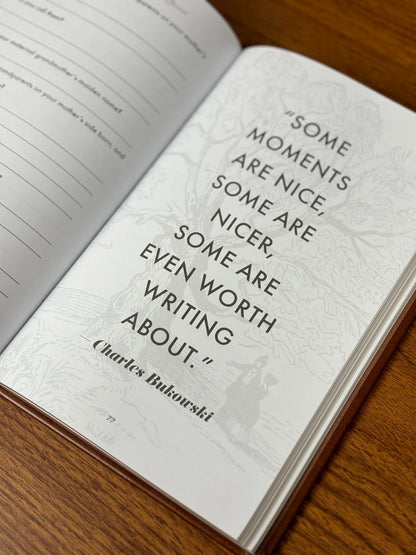 parents on your mother's
you call them?
maternal grandmother's maiden name?
grandparents on your mother's side born, and
?
"SOME
MOMENTS
ARE NICE,
SOME ARE
NICER,
SOME ARE
EVEN WORTH
WRITING
ABOUT."
Charles Bukowski
77